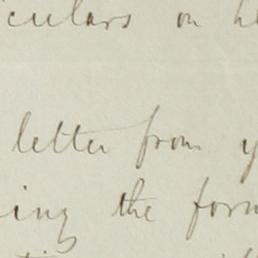 iculars on he
letter from y
ing the form